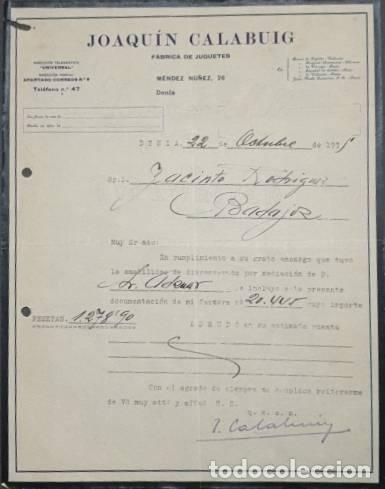 JOAQUÍN CALABUIG
FÁBRICA DE JUGUETES
DIRECCIÓN TELEGRÁFICA
"UNIVERSAL"
DIRECCIÓN POSTAL
APARTADO CORREOS N.º 9
Teléfono n.º 47
MÉNDEZ NÚÑEZ, 20
Denia
DENIA, 22 de Octubre de 193
Sr.
Jacinto Rodriguez
Badajoz
Muy Sr mio:
En cumplimiento a su grato encargo que tuvo
la amabilidad de por mediación de D.
Sr. e incluyo a la presente
documentación de mi factura nº 20.445 cuyo importe
PESETAS. 1.278'90 ADEUDO en su estimada cuenta
Con el agrado de siempre me complace reiterarme
de Vd muy attº y affmº S. S.
q.e.s.m.
J. Calabuig
todocoleccion.net